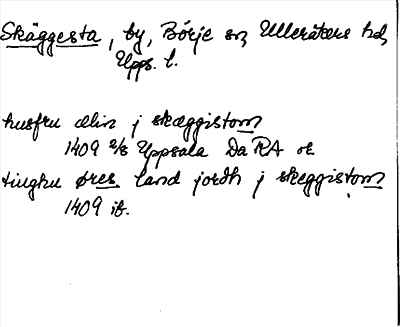 Skäggesta, by, Börje sn, Ulleråkers hd,
Upps. l.
husfru ælin j skæggistom
1409 2/8 Uppsala Da RA or
tiughu øres land jordh j skeggistom
1409 ib.